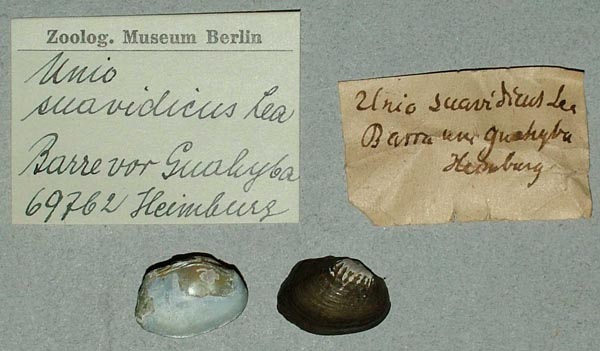 Zoolog. Museum Berlin
Unio
suavidicus Lea
Barre vor Guahyba
69762 Heimburg
Unio suavidicus Lea
Barra Guahyba
Heimburg